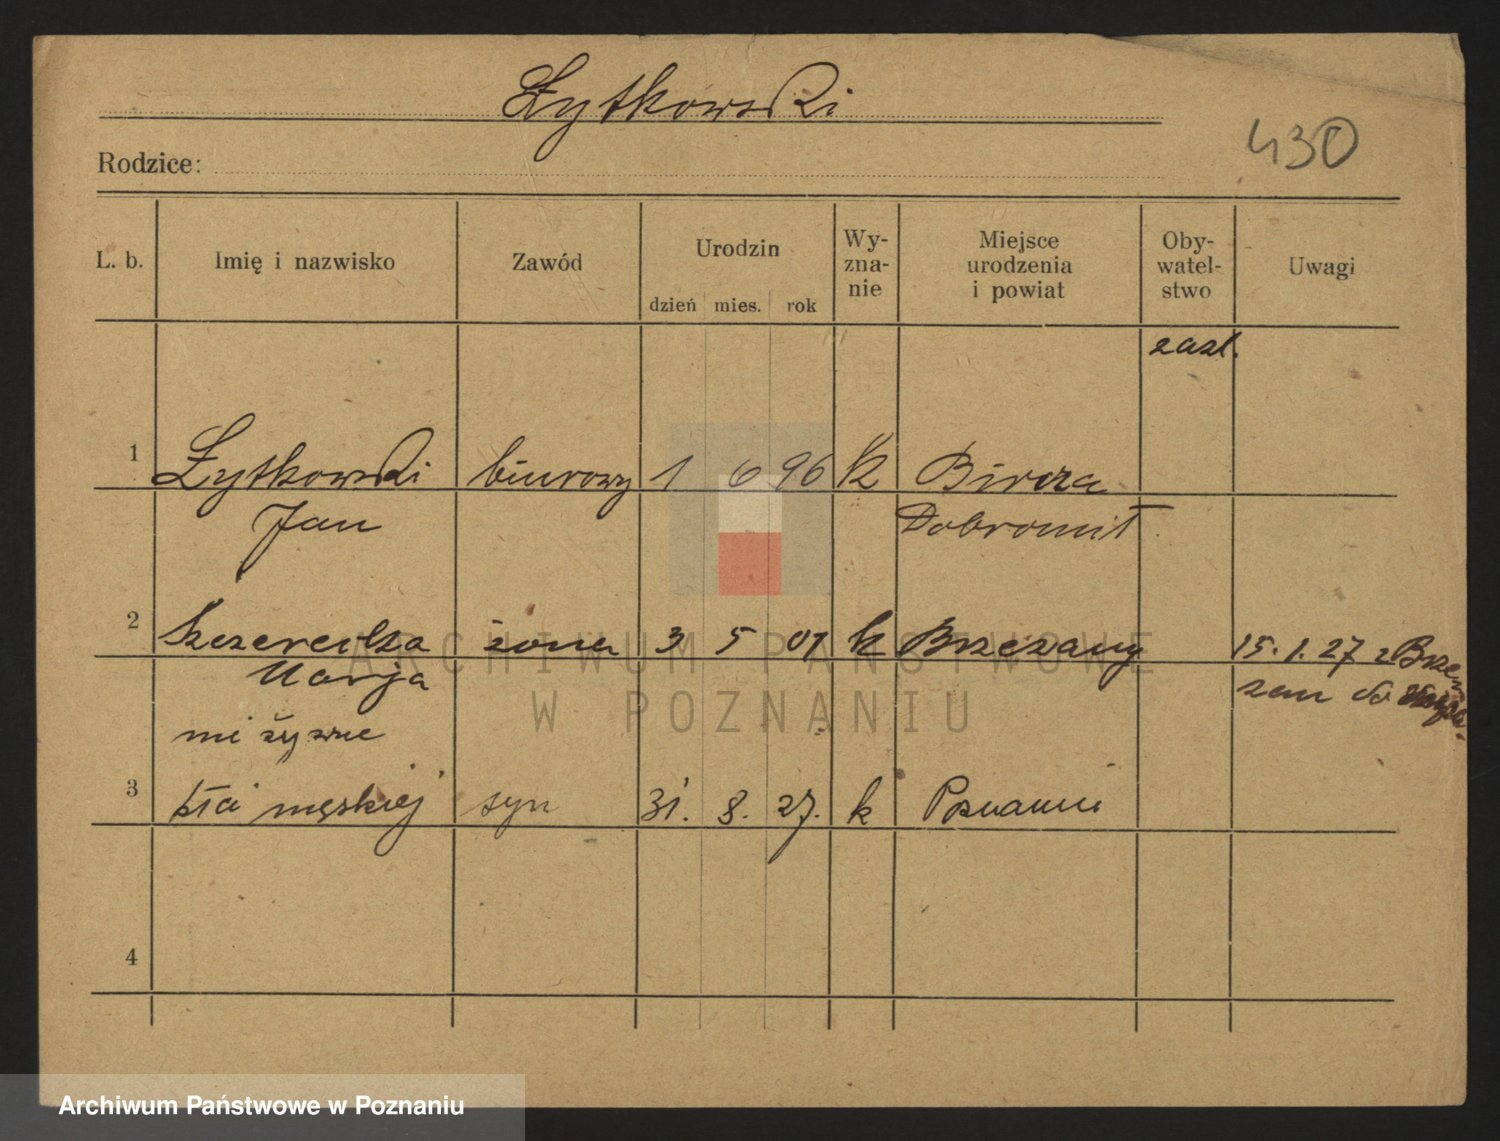 Żytkowski
430
Rodzice:
L. b. Imię i nazwisko Zawód Urodzin dzień mies. rok Wy-zna-nie Miejsce urodzenia i powiat Oby-watel-stwo Uwagi
zasł.
1 Żytkowski biurowy 1 6 96 k Bircza
Jan Dobromil
2 żona 3 5 01 k Brzeżany 15.1.27 z Brze
Marja żan do
nieżywe
3 płci męskiej syn 31. 8. 27. k Poznaniu
4
ARCHIWUM PAŃSTWOWE
W POZNANIU
Archiwum Państwowe w Poznaniu